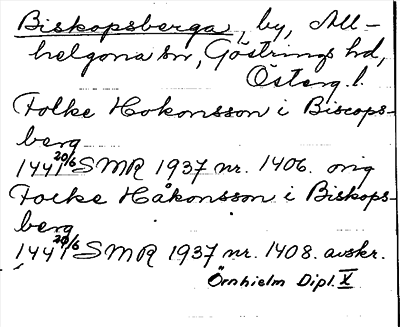 Biskopsberga, by, All-
helgona sn, Göstrings hd,
Österg. l.
Folke Hokonsson i Biscops-
berg
1441 20/6 SMR 1937 nr. 1406. orig
Focke Håkonsson i Biskops-
berg
1441 20/6 SMR 1937 nr. 1408. avskr.
Örnhielm Dipl. X